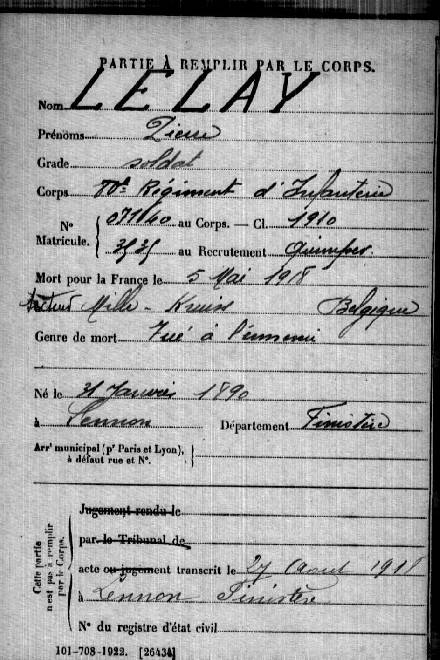 PARTIE À REMPLIR PAR LE CORPS.
Nom LE LAY
Prénoms Pierre
Grade soldat
Corps Régiment d'Infanterie
N° Matricule. 071140 au Corps. — Cl. 1910
3535 au Recrutement Quimper
Mort pour la France le 5 Mai 1918
Mille - Kruis Belgique
Genre de mort Tué à l'ennemi
Né le 31 Janvier 1890
à Lennon Département Finistère
Arr<sup>t</sup> municipal (p<sup>r</sup> Paris et Lyon), à défaut rue et N°.
Cette partie n'est pas à remplir par le Corps.
Jugement rendu le
par le Tribunal de
acte ou jugement transcrit le 27 Aout 1918
à Lennon Finistère
N° du registre d'état civil
101-708-1922. [26434]